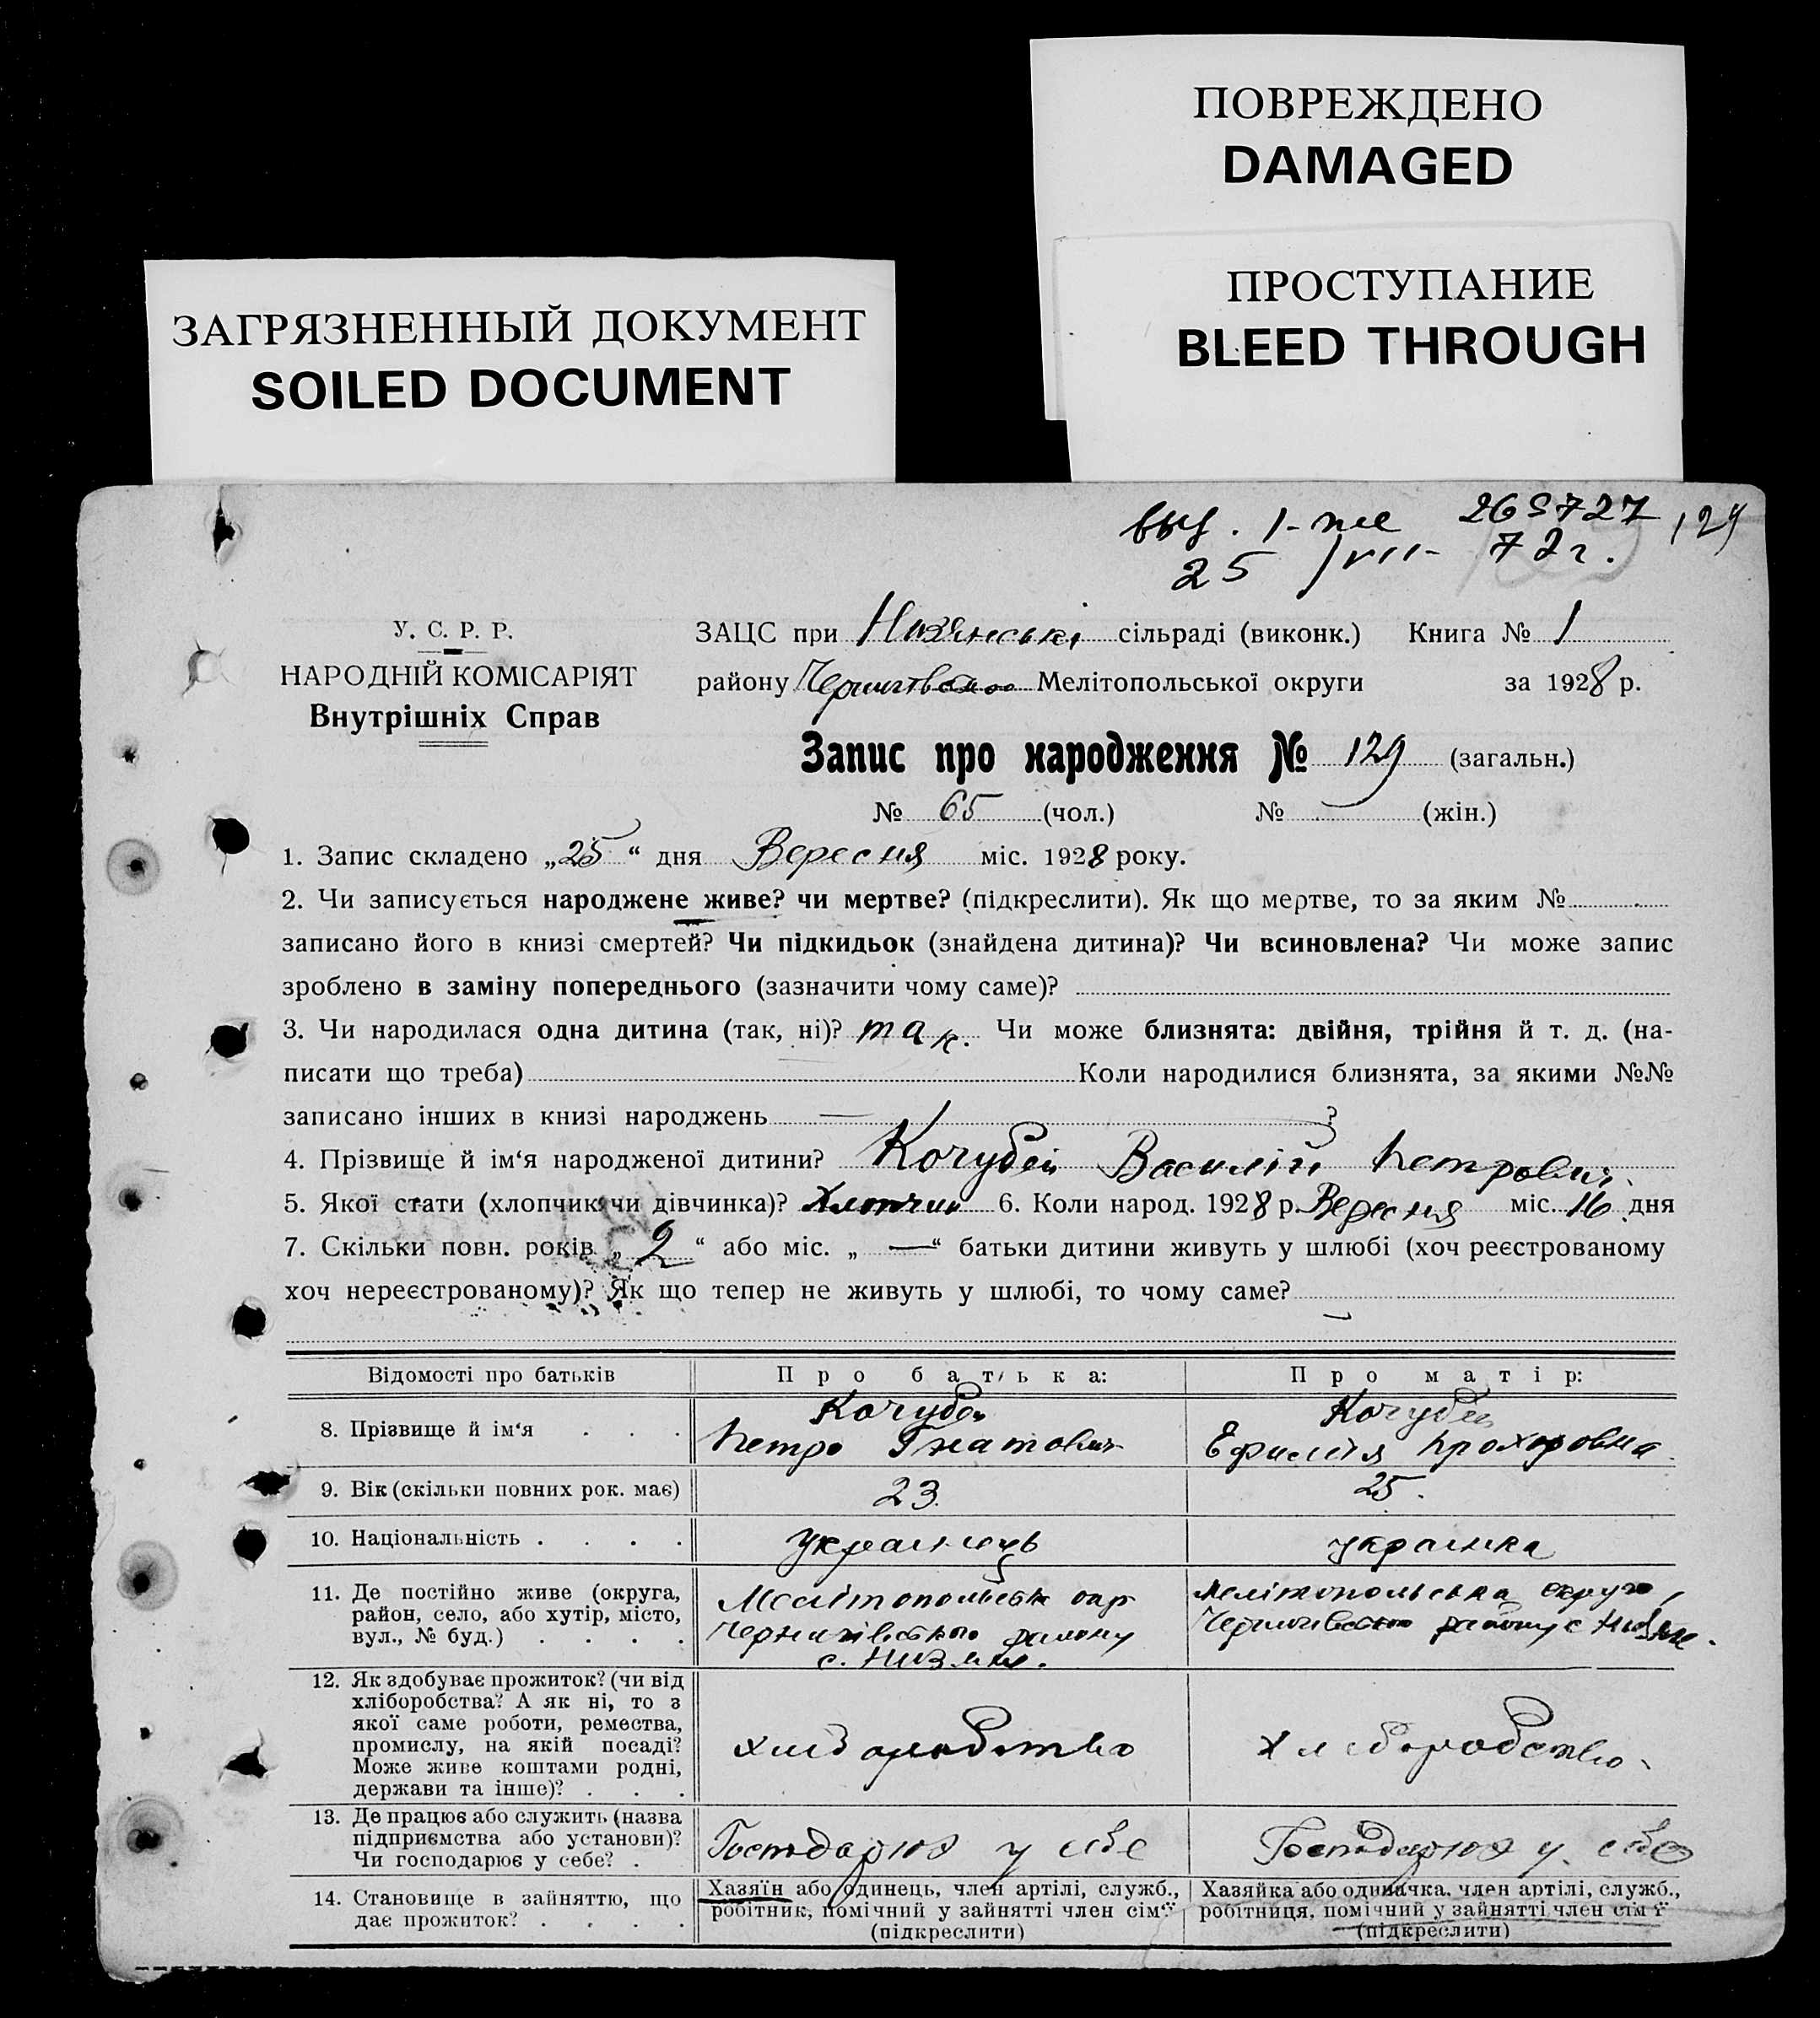 ПОВРЕЖДЕНО
DAMAGED
ПРОСТУПАНИЕ
BLEED THROUGH
ЗАГРЯЗНЕННЫЙ ДОКУМЕНТ
SOILED DOCUMENT
129
25 VII- 72 г.
У. С. Р. Р.
НАРОДНІЙ КОМІСАРІЯТ
Внутрішніх Справ
ЗАЦС при сільраді (виконк.) Книга № 1
району Мелітопольської округи за 1928 р.
Запис про народження № 129 (загальн.)
№ 65 (чол.) № (жін.)
1. Запис складено „25“ дня Вересня міс. 1928 року.
2. Чи записується народжене живе? чи мертве? (підкреслити). Як що мертве, то за яким №
записано його в книзі смертей? Чи підкидьок (знайдена дитина)? Чи всиновлена? Чи може запис
зроблено в заміну попереднього (зазначити чому саме)?
3. Чи народилася одна дитина (так, ні)? так. Чи може близнята: двійня, трійня й т. д. (на-
писати що треба) Коли народилися близнята, за якими №№
записано інших в книзі народжень — ?
4. Прізвище й ім‘я народженої дитини? Кочубей Василій Петрович
5. Якої стати (хлопчик чи дівчинка)? Хлопчик 6. Коли народ. 1928 р. Вересня міс. 16 дня
7. Скільки повн. років „2“ або міс. „—“ батьки дитини живуть у шлюбі (хоч реєстрованому
хоч нереєстрованому)? Як що тепер не живуть у шлюбі, то чому саме?
Відомості про батьків Про батька: Про матір:
8. Прізвище й ім‘я . . .
Кочубей
Петро Гнатович
Кочубей
Прохоровна
9. Вік (скільки повних рок. має) 23. 25.
10. Національність . . . . українець українка
11. Де постійно живе (округа,
район, село, або хутір, місто,
вул., № буд.) . . . .
Мелітопольська окр
Чернигівського району
с. Низяни.
Мелітопольська округа,
Чернигівського району с Низяни.
12. Як здобуває прожиток? (чи від
хліборобства? А як ні, то з
якої саме роботи, ремества,
промислу, на якій посаді?
Може живе коштами родні,
держави та інше)? . . .
хліборобство
хліборобство
13. Де працює або служить (назва
підприємства або установи)?
Чи господарює у себе? .
Господарює у себе
Господарює у себе
14. Становище в зайняттю, що
дає прожиток? . . . .
Хазяїн або одинець, член артілі, служб.,
робітник, помічний у зайнятті член сім‘ї
(підкреслити)
Хазяйка або одиначка, член артілі, служб.,
робітниця, помічний у зайнятті член сім‘ї
(підкреслити)